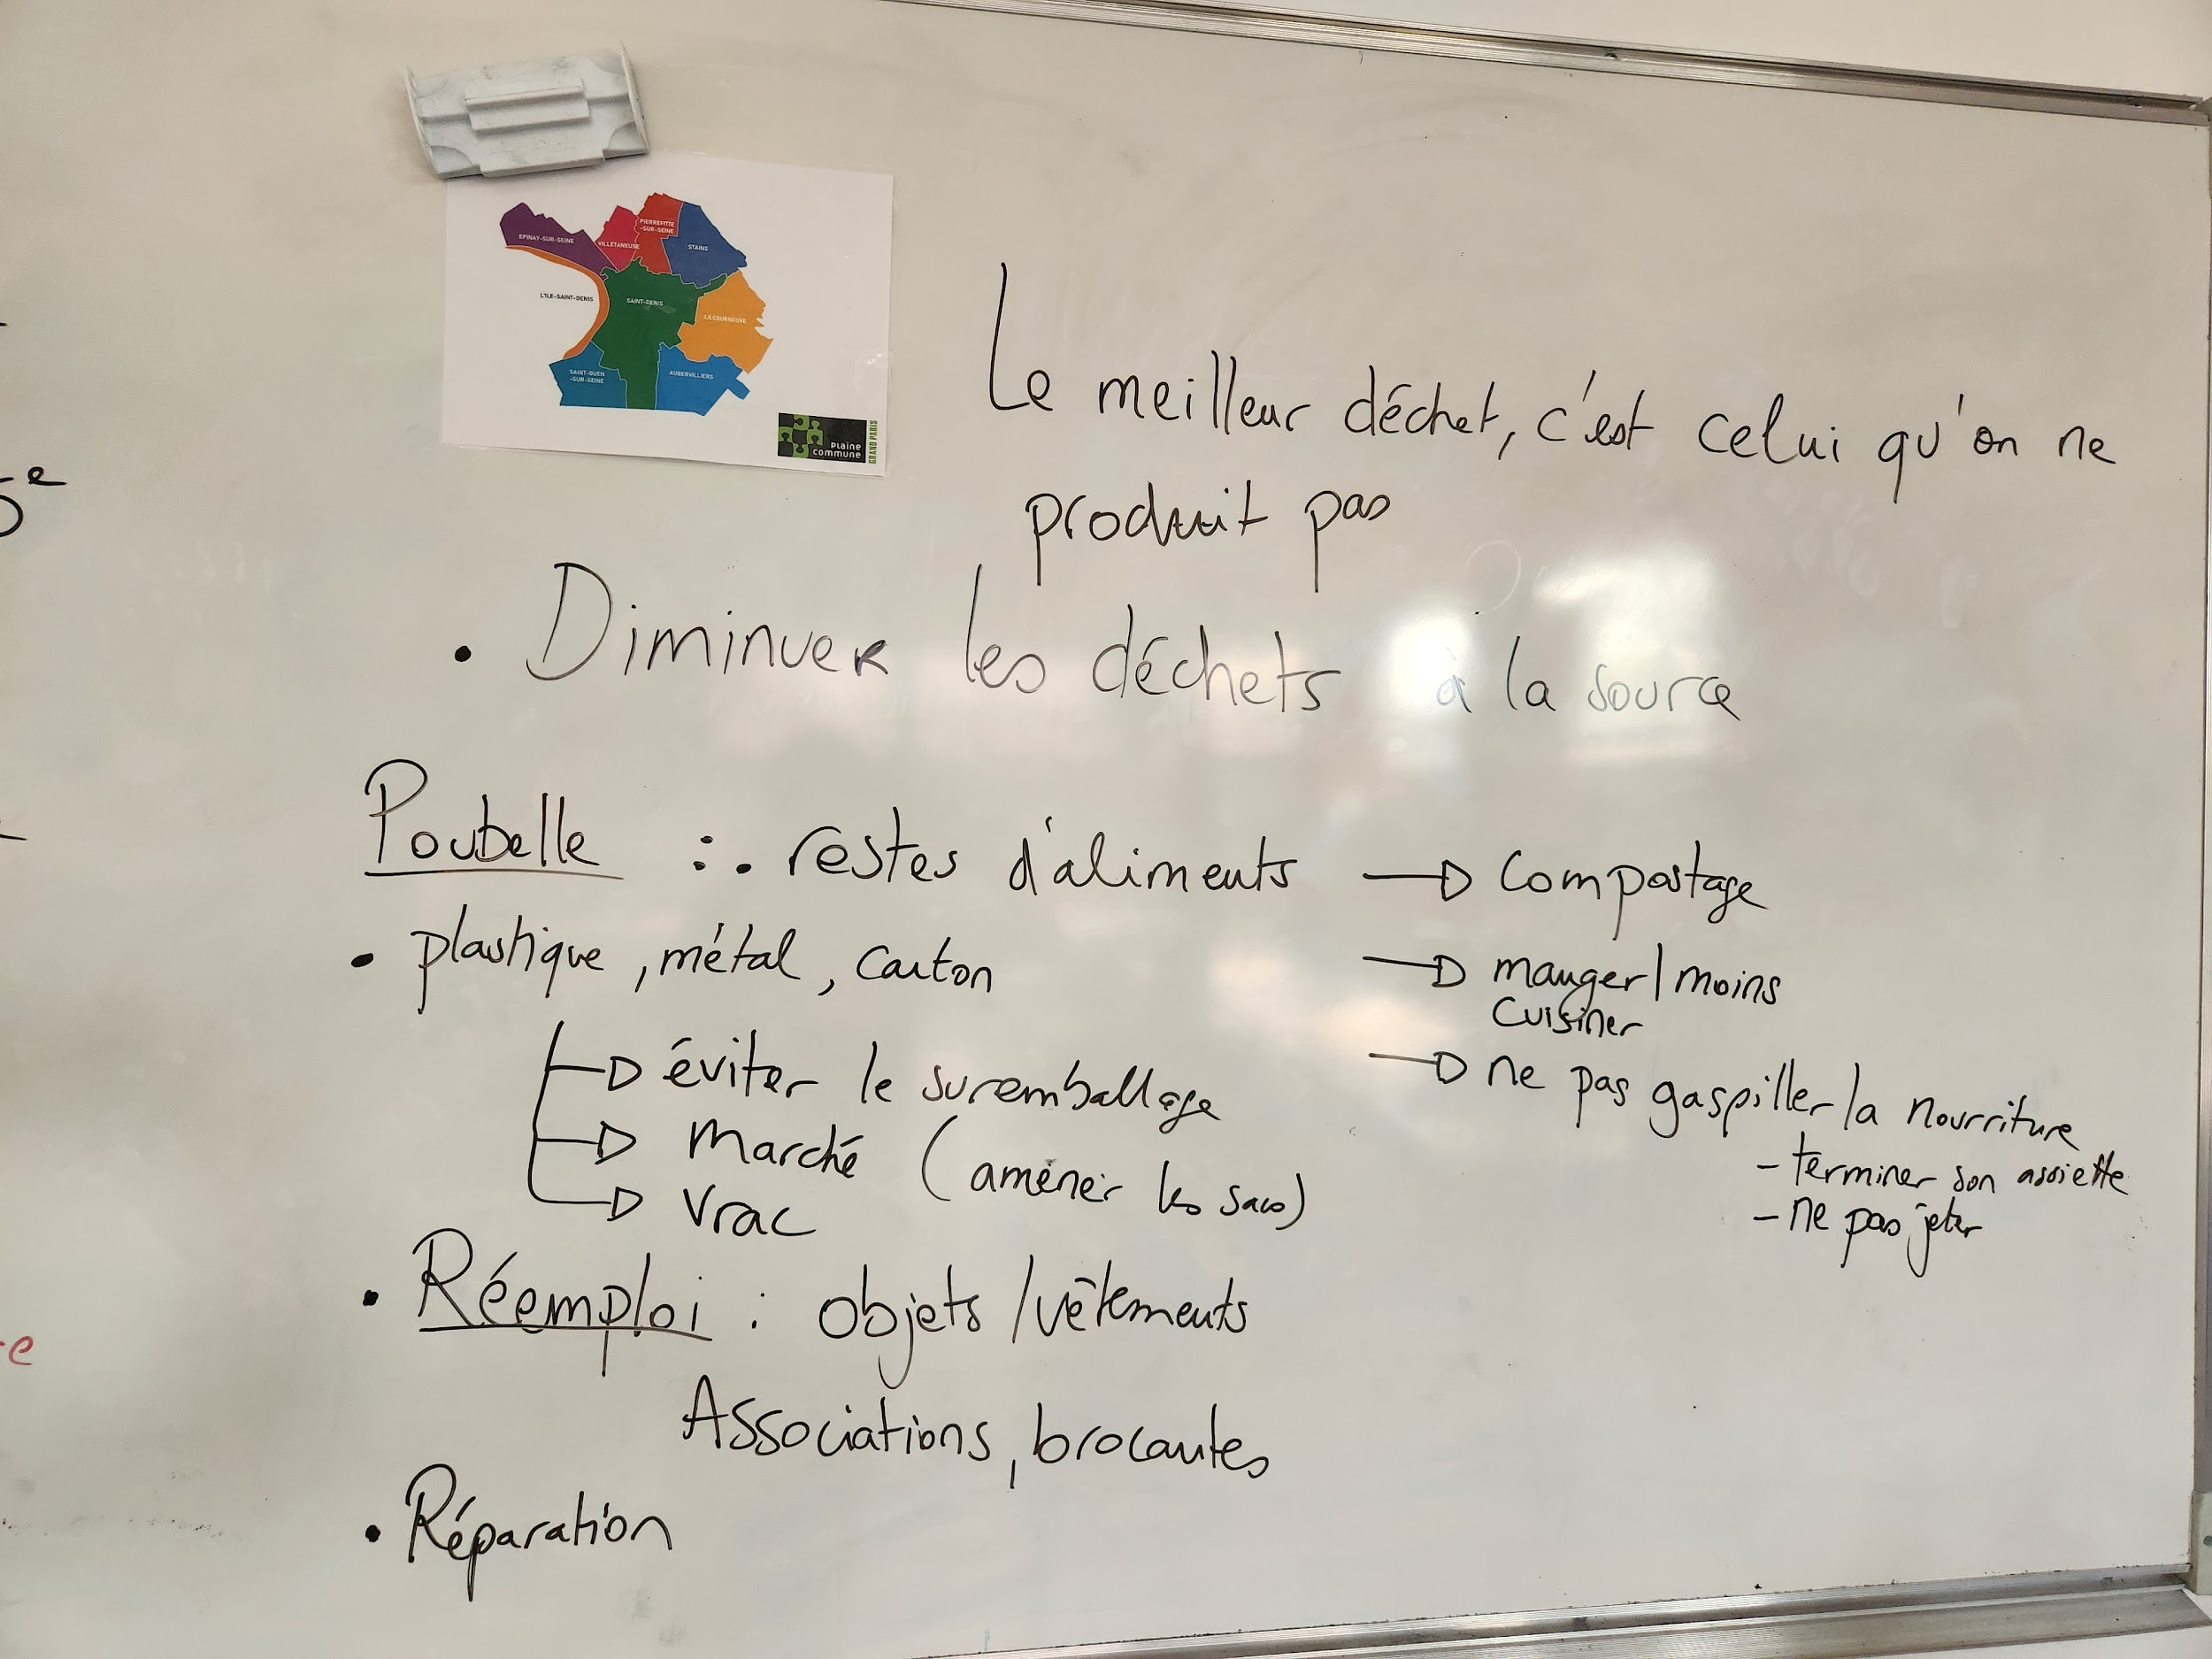 EPINAY-SUR-SEINE
VILLETANEUSE
PIERREFITTE
-SUR-SEINE
STAINS
L'ILE-SAINT-DENIS
SAINT-DENIS
LA COURNEUVE
SAINT-OUEN
-SUR-SEINE
AUBERVILLIERS
plaine
commune
GRAND PARIS
Le meilleur déchet, c'est celui qu'on ne
produit pas
• Diminuer les déchets à la source
Poubelle : • restes d'aliments → compostage
• plastique, métal, carton
→ manger/moins
cuisiner
→ ne pas gaspiller la nourriture
- terminer son assiette
- ne pas jeter
→ éviter le suremballage
→ Marché (amener les sacs)
→ Vrac
• Réemploi : objets / vêtements
Associations, brocantes
• Réparation
5e
e